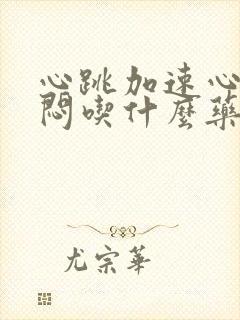 心跳加速心
悶喫什麼藥
尤宗華